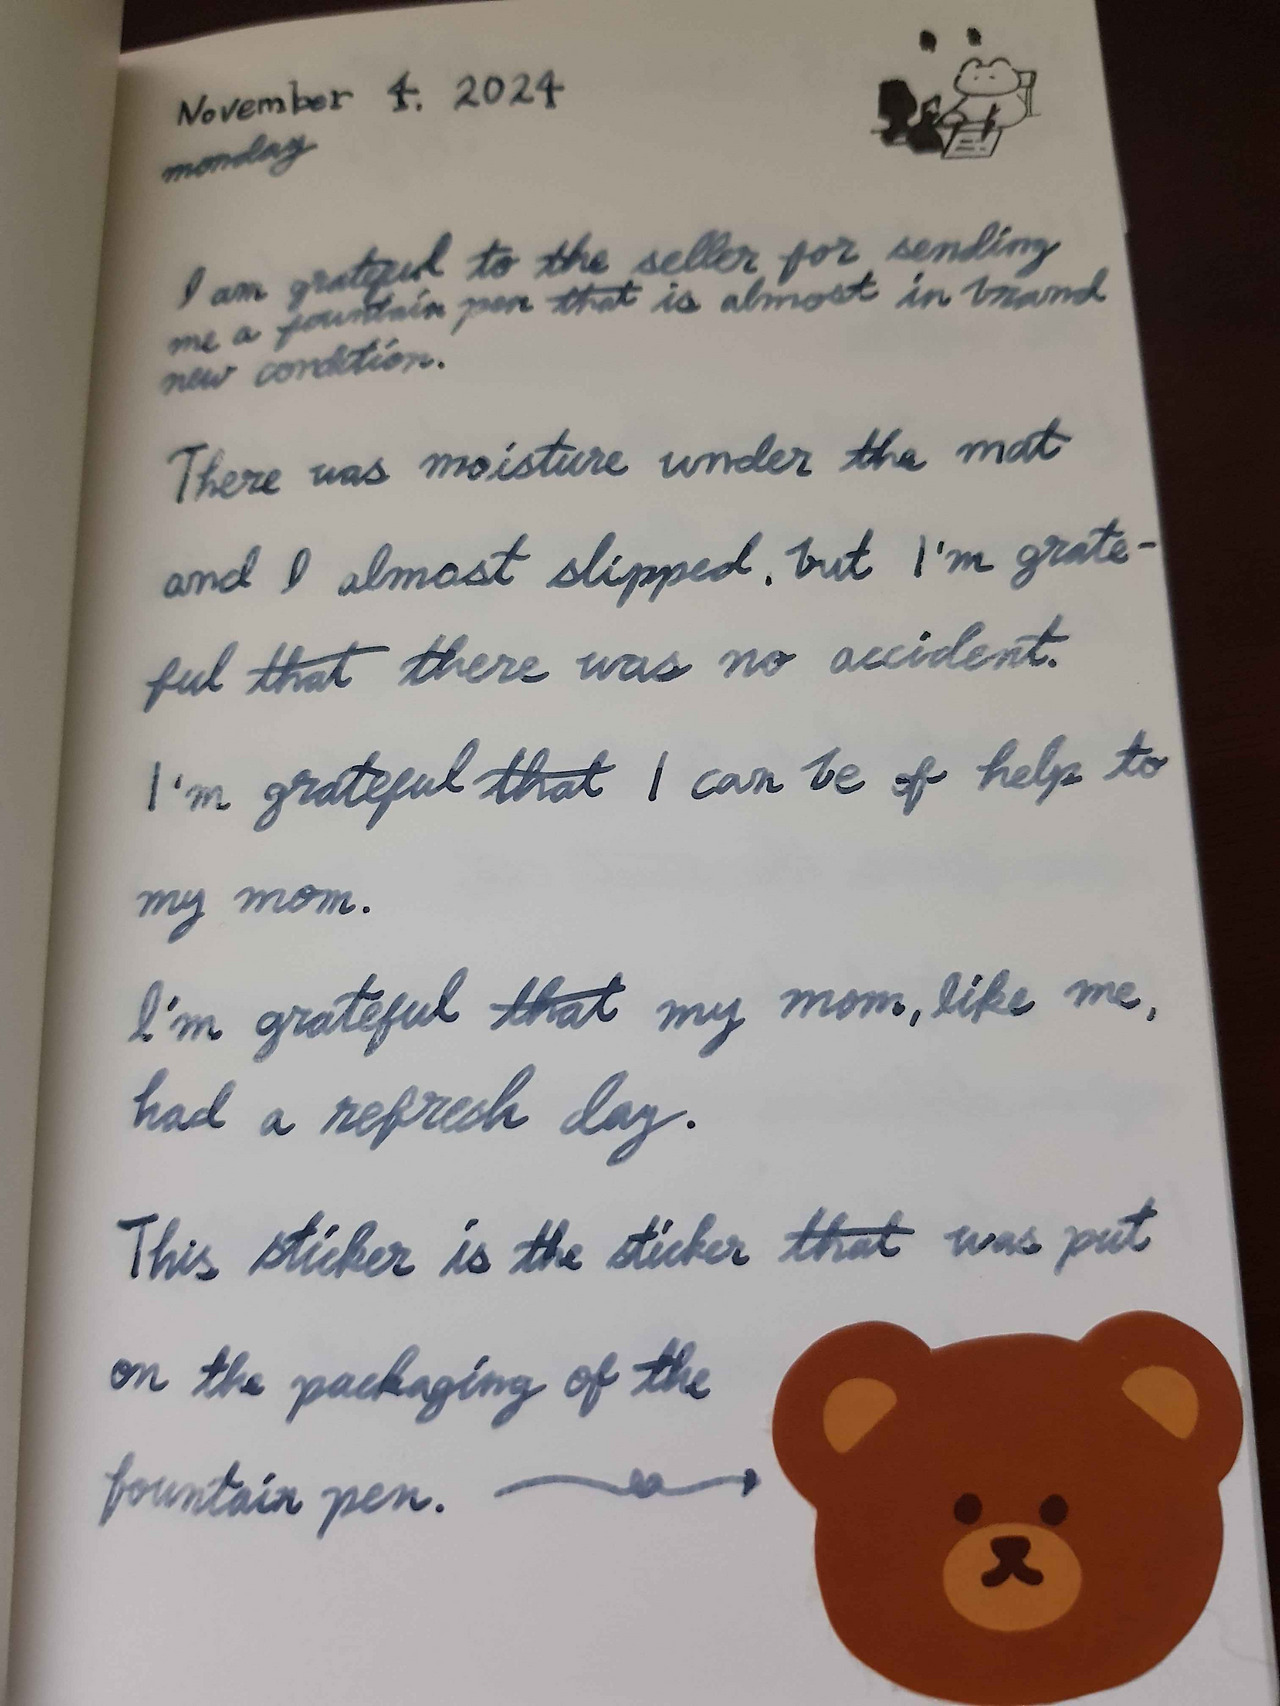 November 4. 2024
monday
I am grateful to the seller for sending
me a fountain pen that is almost in brand
new condition.
There was moisture under the mat
and I almost slipped, but I'm grate-
ful that there was no accident.
I'm grateful that I can be of help to
my mom.
I'm grateful that my mom, like me,
had a refresh day.
This sticker is the sticker that was put
on the packaging of the
fountain pen.